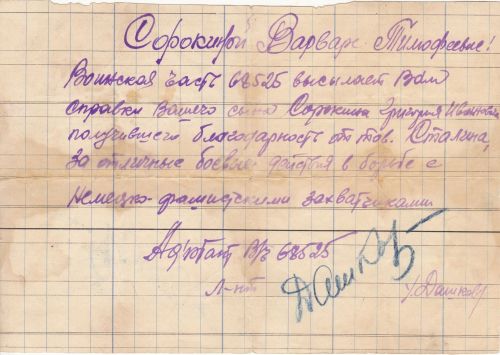 Сорокиной Варваре Тимофеевне!
Воинская часть 68525 высылает Вам
справки Вашего сына Сорокина Григория Ивановича
получившего благодарность от тов. Сталина,
за отличные боевые действия в борьбе с
немецко-фашистскими захватчиками
Адъютант в/ч 68525
Л-нт
/Дашков/